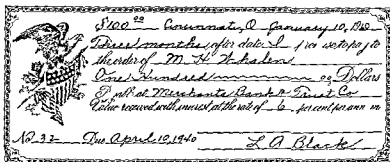 $100 00 Cincinnati, O January 10, 1940
Three months after date I promise to pay to
the order of M. H. Whalen
One Hundred 00 Dollars
at Merchants Bank & Trust Co
Value received with interest at the rate of 6 per cent per annum
No 32 Due April 10, 1940 L A Black